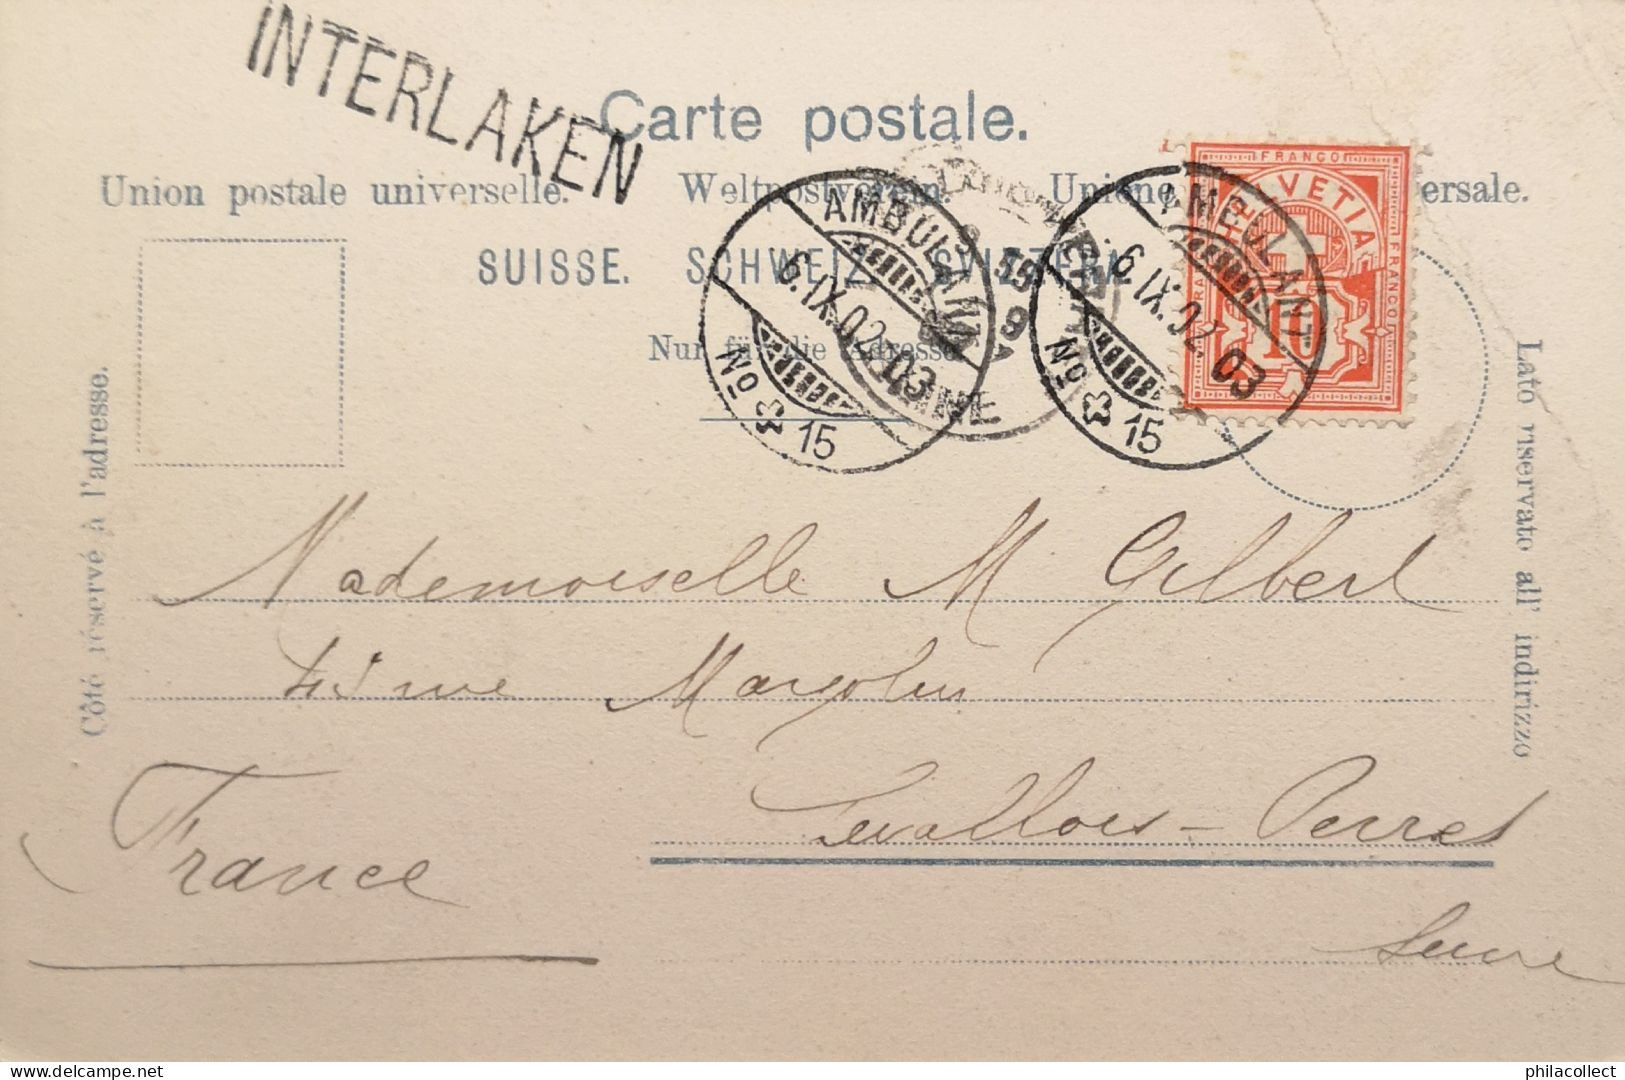 INTERLAKEN
Carte postale.
Union postale universelle. Weltpostverein. Unione ersale.
SUISSE. SCHWEIZ. SVIZZERA.
Nur für die Adresse.
Côté réservé à l'adresse.
Lato riservato all' indirizzo
AMBULANT
6.IX.02. 03
No 15
AMBULANT
6.IX.02. 03
No 15
55
9
SEINE
FRANCO
HELVETIA
FRANCO
FRANCO
10
Mademoiselle M Gilbert
rue
Levallois-Perret
France
Seine
philacollect
philacollect